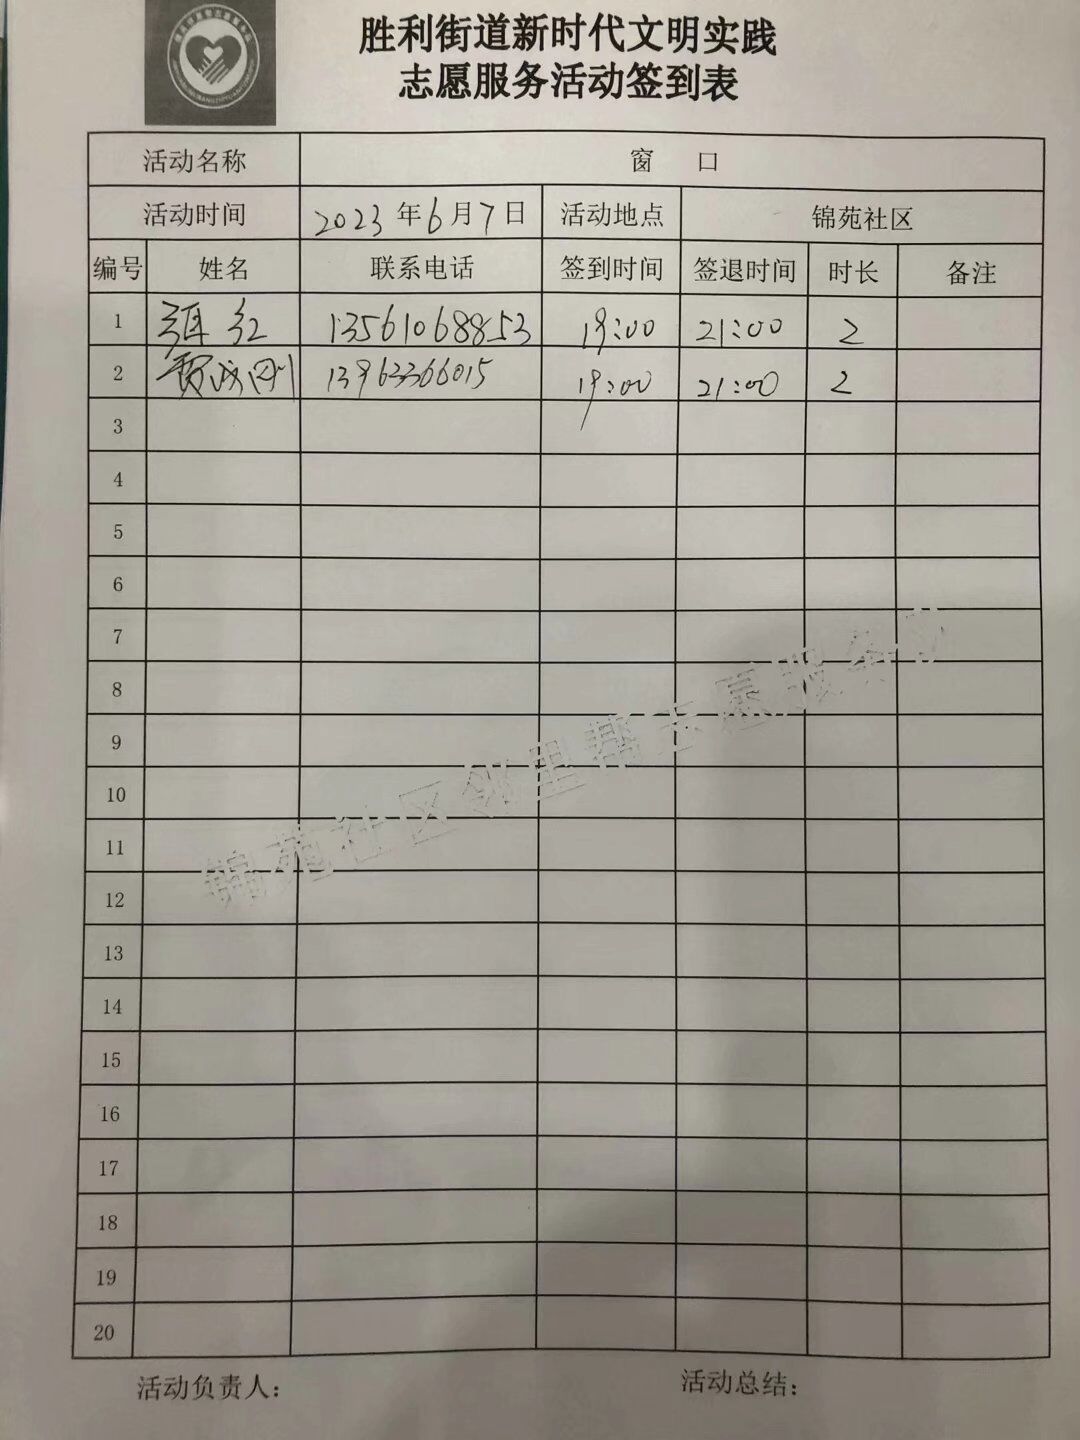 胜利街道新时代文明实践
志愿服务活动签到表
活动名称 窗 口
活动时间 2023 年 6 月 7 日 活动地点 锦苑社区
编号 姓名 联系电话 签到时间 签退时间 时长 备注
1 红 13561068853 19:00 21:00 2
2 贾 13963366015 19:00 21:00 2
3
4
5
6
7
8
9
10
11
12
13
14
15
16
17
18
19
20
锦苑社区邻里帮志愿服务队
活动负责人： 活动总结：